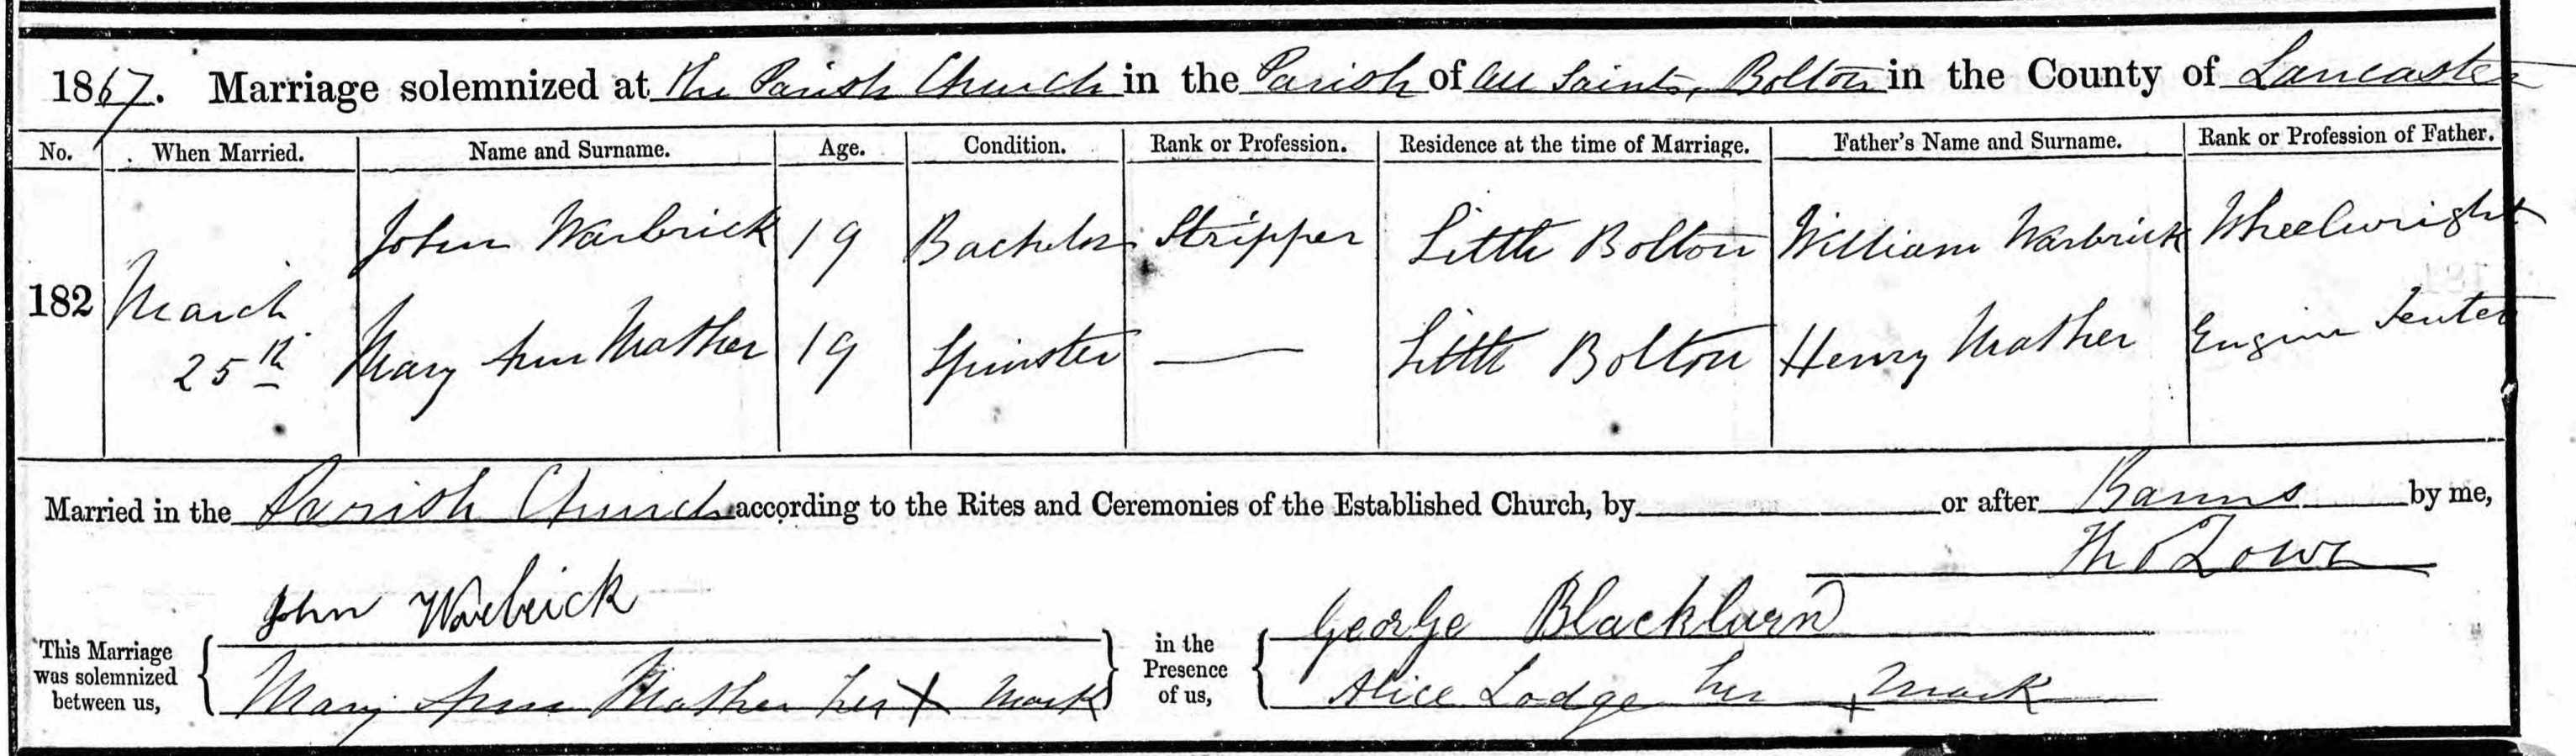 1867. Marriage solemnized at The Parish Church in the Parish of All Saints, Bolton in the County of Lancaster
No. When Married. Name and Surname. Age. Condition. Rank or Profession. Residence at the time of Marriage. Father's Name and Surname. Rank or Profession of Father.
182 March 25th John Warbrick 19 Bachelor Stripper Little Bolton William Warbrick Wheelwright
Mary Ann Mather 19 Spinster — Little Bolton Henry Mather Engine Tenter
Married in the Parish Church according to the Rites and Ceremonies of the Established Church, by or after Banns by me,
Tho Lowe
This Marriage was solemnized between us, John Warbrick
Mary Ann Mather her X mark
in the Presence of us, George Blackburn
Alice Lodge her X mark